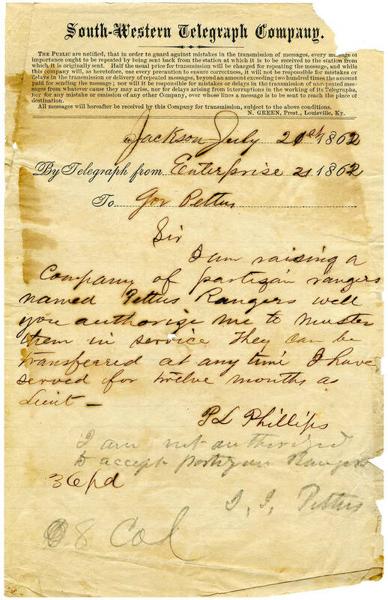 South-Western Telegraph Company.
THE PUBLIC are notified, that in order to guard against mistakes in the transmission of messages, every message of
importance ought to be repeated by being sent back from the station at which it is to be received to the station from
which it is originally sent. Half the usual price for transmission will be charged for repeating the message, and while
this company will, as heretofore, use every precaution to ensure correctness, it will not be responsible for mistakes or
delays in the transmission or delivery of repeated messages, beyond an amount exceeding two hundred times the amount
paid for sending the message; nor will it be responsible for mistakes or delays in the transmission of unrepeated mes-
sages from whatever cause they may arise, nor for delays arising from interruptions in the working of its Telegraphs,
nor for any mistake or omission of any other Company, over whose lines a message is to be sent to reach the place of
destination.
All messages will hereafter be received by this Company for transmission, subject to the above conditions.
N. GREEN, Prest., Louisville, Ky.
Jackson July 21st 1862
By Telegraph from Enterprise 21 1862
To Gov Pettus
Sir
I am raising a
Company of partizan rangers
named Pettus Rangers well
you authorise me to muster
them in service they can be
transferred at any time I have
served for twelve months as
Lieut —
P L Phillips
I am not authorized
to accept partizan Rangers
36 pd
J. J. Pettus
8 Col